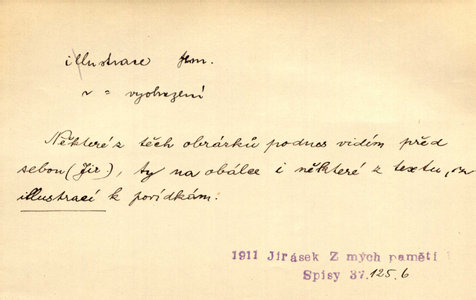 illustrace fem.
= vyobrazení
Některé z těch obrázků podnes vidím před
sebou (Jir), ty na obálce i některé z textu,
illustrací k povídkám.
1911 Jirásek Z mých pamětí
Spisy 37. 125. 6